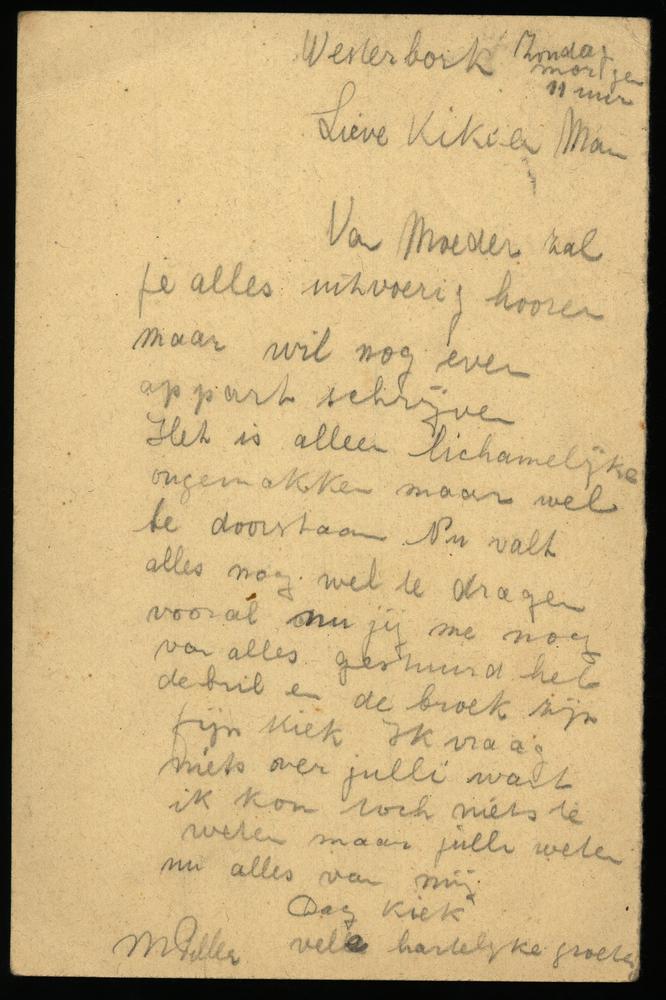 Westerbork Zondag
morgen
11 uur
Lieve Kik en Man
Van Moeder zal
je alles uitvoerig hooren
maar wil nog even
appart schrijven
Het is alleen lichamelijke
ongemakken maar wel
te doorstaan Nu valt
alles nog wel te dragen
vooral nu jij me nog
van alles gestuurd heb
de bril en de broek zijn
fijn Kiek Ik vraag
niets over julli want
ik kom toch niets te
weten maar julli weten
nu alles van mij
Dag Kiek
vele hartelijke groeten